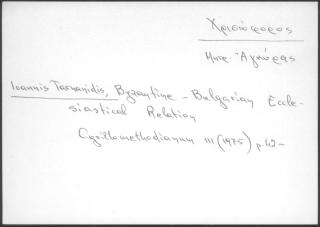 Χριστόφορος
Μητρ. Ἀγκύρας
Ioannis Tarnanidis, Byzantine - Bulgarian Eccle-
siastical Relation
Cyrillomethodianum III (1975) p. 42-